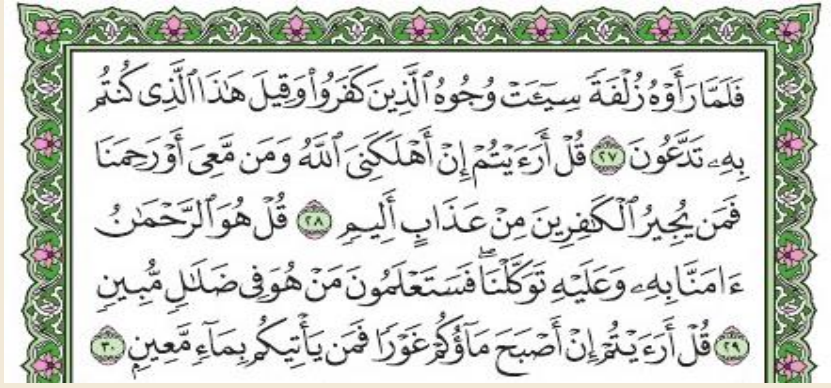 فَلَمَّا رَأَوْهُ زُلْفَةً سِيٓـَٔتْ وُجُوهُ ٱلَّذِينَ كَفَرُوا۟ وَقِيلَ هَـٰذَا ٱلَّذِى كُنتُم
بِهِۦ تَدَّعُونَ ٢٧ قُلْ أَرَءَيْتُمْ إِنْ أَهْلَكَنِىَ ٱللَّهُ وَمَن مَّعِىَ أَوْ رَحِمَنَا
فَمَن يُجِيرُ ٱلْكَـٰفِرِينَ مِنْ عَذَابٍ أَلِيمٍ ٢٨ قُلْ هُوَ ٱلرَّحْمَـٰنُ
ءَامَنَّا بِهِۦ وَعَلَيْهِ تَوَكَّلْنَا ۖ فَسَتَعْلَمُونَ مَنْ هُوَ فِى ضَلَـٰلٍ مُّبِينٍ
٢٩ قُلْ أَرَءَيْتُمْ إِنْ أَصْبَحَ مَآؤُكُمْ غَوْرًا فَمَن يَأْتِيكُم بِمَآءٍ مَّعِينٍۭ ٣٠